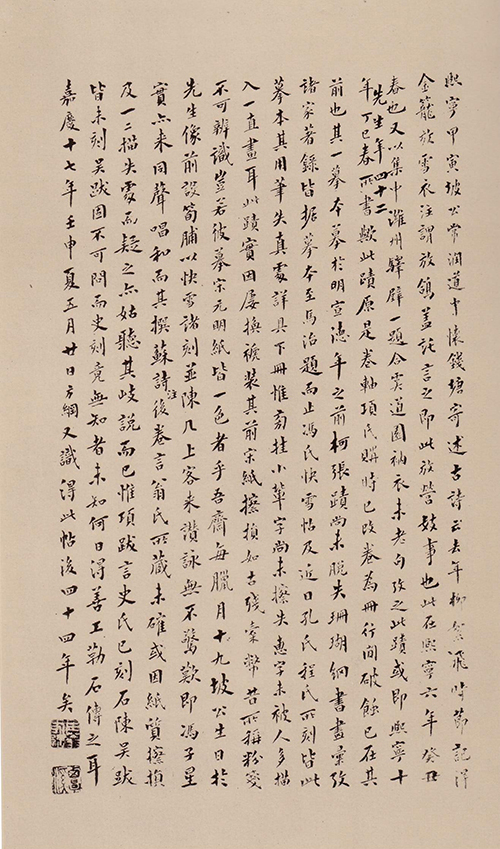 熙寧甲寅坡公常潤道中懷錢塘寄述古詩云去年柳絮飛時節記得
金籠放雪衣注謂放鴿蓋託言之即此放營妓事也此在熙寧六年癸丑
春也又以集中濰州驛壁一題合道圓衲衣未老句攷之此蹟或即熙寧十
先生年四十二
年丁巳春所書歟此蹟原是卷軸項氏購時已改卷為冊行間破蝕已在其
前也其一摹本摹於明宣德年之前柯張蹟尚未脫失珊瑚網書畫彙攷
諸家著錄皆据摹本至馬治題而止馮氏快雪帖及近日孔氏程氏所刻皆此
摹本其用筆失真處詳具下冊惟挂小草字尚未擦失惠字未被人多描
入一直畫耳此蹟實因屢換褫裝其前宋紙擦損如古殘橐幣昔所稱粉變
不可辨識豈若彼摹宋元明紙皆一色者乎吾齋每臘月十九坡公生日於
先生像前設筍脯以快雪諸刻並陳几上客來讚詠無不驚歎即馮子星
實亦來同聲唱和而其撰蘇詩注後卷言翁氏所藏未確或因紙質擦損
及一二描失處而疑之亦姑聽其歧說而已惟項跋言史氏已刻石陳吳跋
皆未刻吳跋固不可問而史刻竟無知者未知何日得善工勒石傳之耳
嘉慶十七年壬申夏五月廿日方綱又識得此帖後四十四年矣